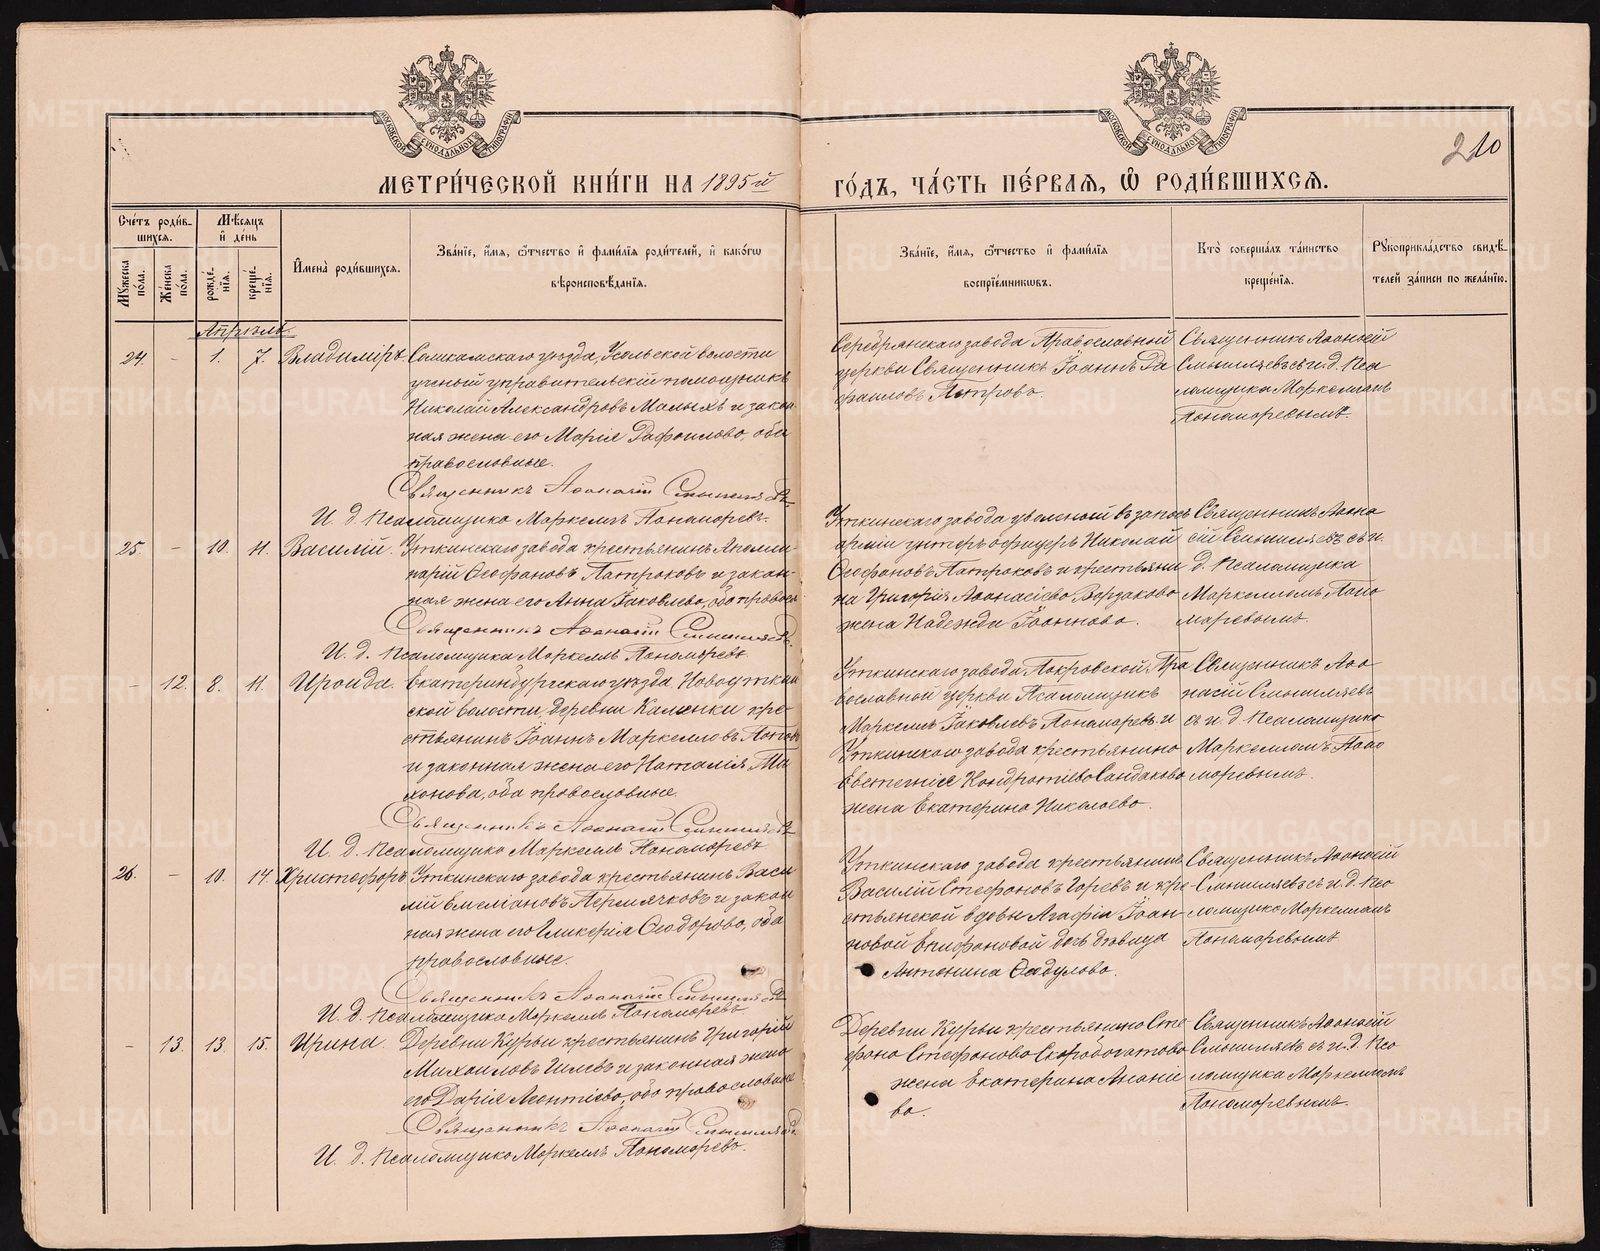 МЕТРИ́ЧЕСКОЙ КНИ́ГИ НА 1895й ГО́ДЪ, ЧА́СТЬ ПЕ́РВАЯ, Ѽ РОДИ́ВШИХСѦ.
210
Сче́тъ роди́в-
шихся.
Мѣсяцъ
и де́нь
Мꙋжеска по́ла.
Же́нска по́ла.
рожде́-
нїя.
креще́-
нїя.
Имена̀ роди́вшихся.
Зва́нїе, и́мя, ѻ́тчество и фами́лїя роди́телей, и како́гѡ
вѣроисповѣ́данїя.
Зва́нїе, и́мя, ѻ́тчество и фами́лїя
воспрїе́мникѡвъ.
Кто̀ соверша́лъ та́инство
креще́нїя.
Рꙋкоприкла́дство свидѣ́-
телей за́писи по жела́нїю.
Апрѣль.
24. - 1. 7. Владиміръ.
Соликамскаго уѣзда, Усольской волости
ученый управительскій помощникъ
Николай Александровъ Малыхъ и закон
ная жена его Марія Рафаилова, оба
православные.
Священникъ Аѳанасій Смышляевъ
И. д. Псаломщика Маркеллъ Пономаревъ.
Серебрянскаго завода Православной
церкви Священникъ Іоаннъ Ра
фаиловъ Петровъ.
Священникъ Аѳанасій
Смышляевъ съ и. д. Пса
ломщика Маркелломъ
Пономаревымъ.
25. - 10. 11. Василій.
Уткинскаго завода крестьянинъ Аполли-
нарій Ѳеофановъ Патраковъ и закон-
ная жена его Анна Іаковлева, оба правосл
Священникъ Аѳанасій Смышляевъ
И. д. Псаломщика Маркеллъ Пономаревъ
Уткинскаго завода уволеный въ запасъ
арміи унтеръ офицеръ Николай
Ѳеофановъ Патраковъ и крестьяни
на Григорія Аѳанасіева Борзакова
жена Надежда Іоаннова.
Священникъ Аѳана
сій Смышляевъ съ и.
д. Псаломщика
Маркелломъ Поно
маревымъ.
- 12. 8. 11. Ироида.
Екатеринбургскаго уѣзда, Новоуткин
ской волости, деревни Каменки кре-
стьянинъ Іоаннъ Маркелловъ Попов
и законная жена его Наталія Ти
хонова, оба православные.
Священникъ Аѳанасій Смышляевъ
И. д. Псаломщика Маркеллъ Пономаревъ
Уткинскаго завода, Покровской Пра
вославной церкви Псаломщикъ
Маркеллъ Іаковлевъ Пономаревъ и
Уткинскаго завода крестьянина
Евстегнія Кондратіева Сандакова
жена Екатерина Николаева.
Священникъ Аѳа
насій Смышляевъ
съ и. д. Псаломщика
Маркелломъ Поно
маревымъ.
26. - 10. 14. Христофоръ.
Уткинскаго завода крестьянинъ Васи
лій Емеліановъ Пермячковъ и закон
ная жена его Гликерія Ѳеодорова, оба
православные.
Священникъ Аѳанасій Смышляевъ
И. д. Псаломщика Маркеллъ Пономаревъ
Уткинскаго завода крестьянинъ
Василій Стефановъ Горевъ и кре-
стьянской вдовы Агафіи Іоан-
новой Епифановой дочь дѣвица
Антонина
Священникъ Аѳанасій
Смышляевъ съ и. д. Пса
ломщика Маркелломъ
Пономаревымъ
- 13. 13. 15. Ирина.
Деревни Курьи крестьянинъ Григорій
Михаиловъ Гилевъ и законная жена
его Дарія Леонтіева, оба православные
Священникъ Аѳанасій Смышляевъ
И. д. Псаломщика Маркеллъ Пономаревъ.
Деревни Курьи крестьянина Сте
фана Стефанова Скоробогатова
жена Екатерина Анание
ва.
Священникъ Аѳанасій
Смышляевъ съ и. д. Пса
ломщика Маркелломъ
Пономаревымъ.